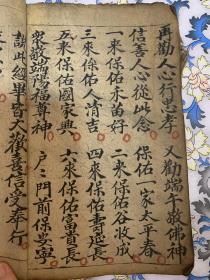 再勸人心行忠孝 又勸端午敬佛神
信善人心從此念 保佑一家太平春
一來保佑禾苗好 二來保佑谷收成
三來保佑人清吉 四來保佑壽延長
五來保佑國家興 六來保佑富貴長
眾敬端陽福尊神 戶〻門前保安寧
誦此經畢皆大歡喜信受奉行